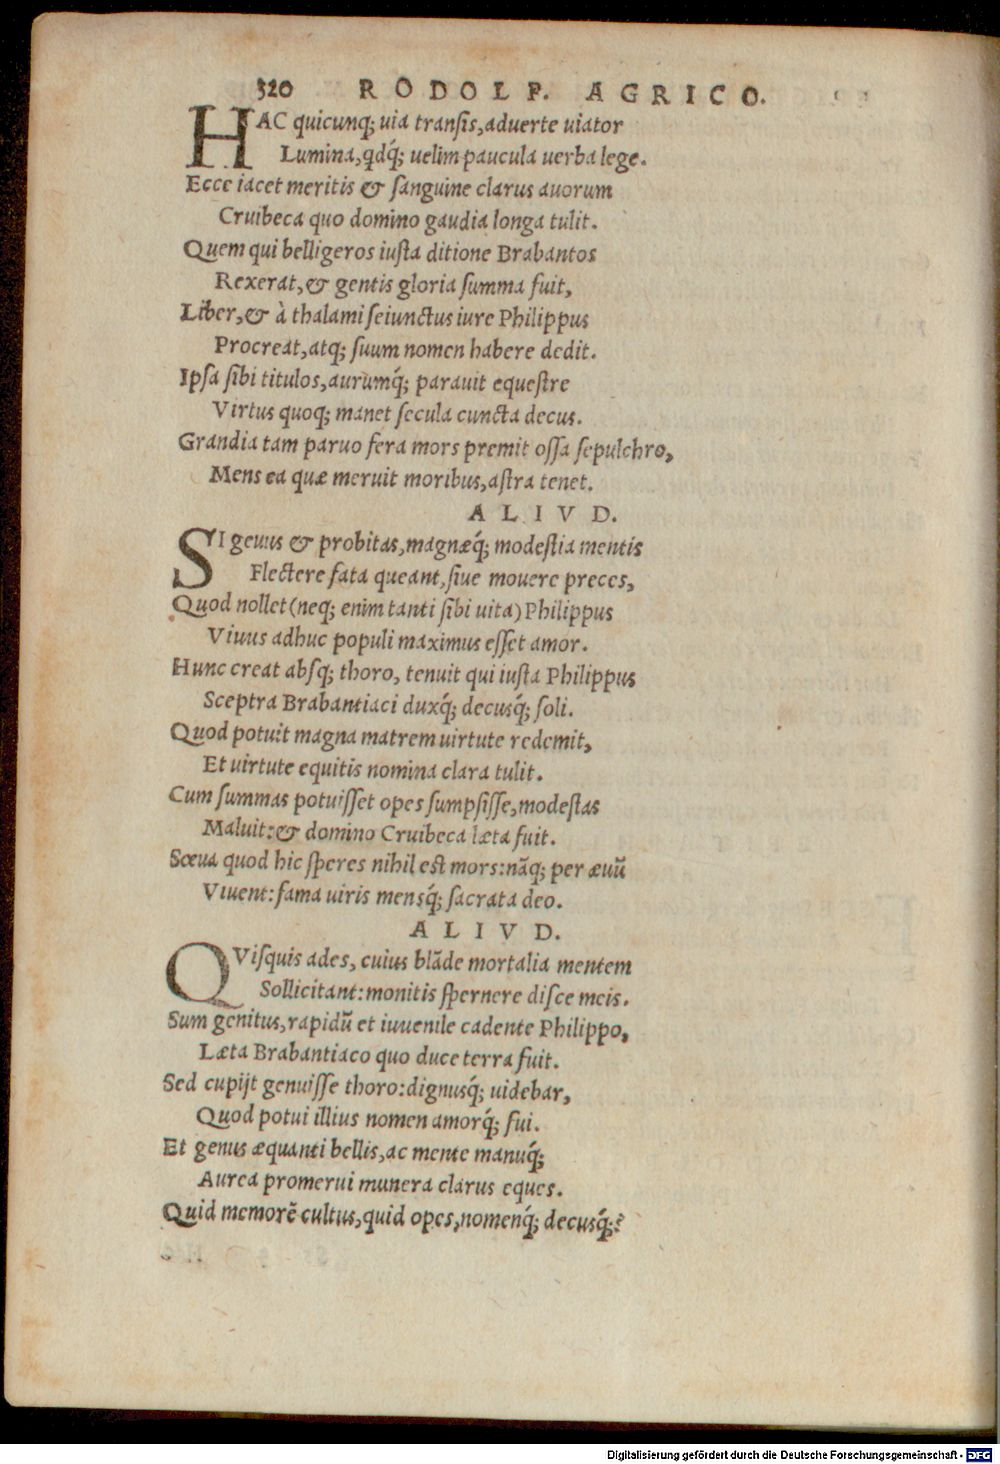 320 RODOLP. AGRICO.
HAC quicunq; uia transis, aduerte uiator
Lumina, qdq́; uelim paucula uerba lege.
Ecce iacet meritis & sanguine clarus auorum
Cruibeca quo domino gaudia longa tulit.
Quem qui belligeros iusta ditione Brabantos
Rexerat, & gentis gloria summa fuit,
Liber, & à thalami seiunctus iure Philippus
Procreat, atq; suum nomen habere dedit.
Ipsa sibi titulos, aurumq́; parauit equestre
Virtus quoq; manet secula cuncta decus.
Grandia tam paruo fera mors premit ossa sepulchro,
Mens ea quæ meruit moribus, astra tenet.
ALIVD.
SI genus & probitas, magnæq́; modestia mentis
Flectere fata queant, siue mouere preces,
Quod nollet (neq; enim tanti sibi uita) Philippus
Viuus adhuc populi maximus esset amor.
Hunc creat absq; thoro, tenuit qui iusta Philippus
Sceptra Brabantiaci duxq́; decusq́; soli.
Quod potuit magna matrem uirtute redemit,
Et uirtute equitis nomina clara tulit.
Cum summas potuisset opes sumpsisse, modestas
Maluit: & domino Cruibeca læta fuit.
Sœua quod hic speres nihil est mors: nãq; per æuũ
Viuent: fama uiris mensq́; sacrata deo.
ALIVD.
QVisquis ades, cuius blãde mortalia mentem
Sollicitant: monitis spernere disce meis.
Sum genitus, rapidũ et iuuenile cadente Philippo,
Læta Brabantiaco quo duce terra fuit.
Sed cupijt genuisse thoro: dignusq́; uidebar,
Quod potui illius nomen amorq́; fui.
Et genus æquanti bellis, ac mente manuq́;
Aurea promerui munera clarus eques.
Quid memorẽ cultus, quid opes, nomenq́; decusq́;?
Digitalisierung gefördert durch die Deutsche Forschungsgemeinschaft - DFG